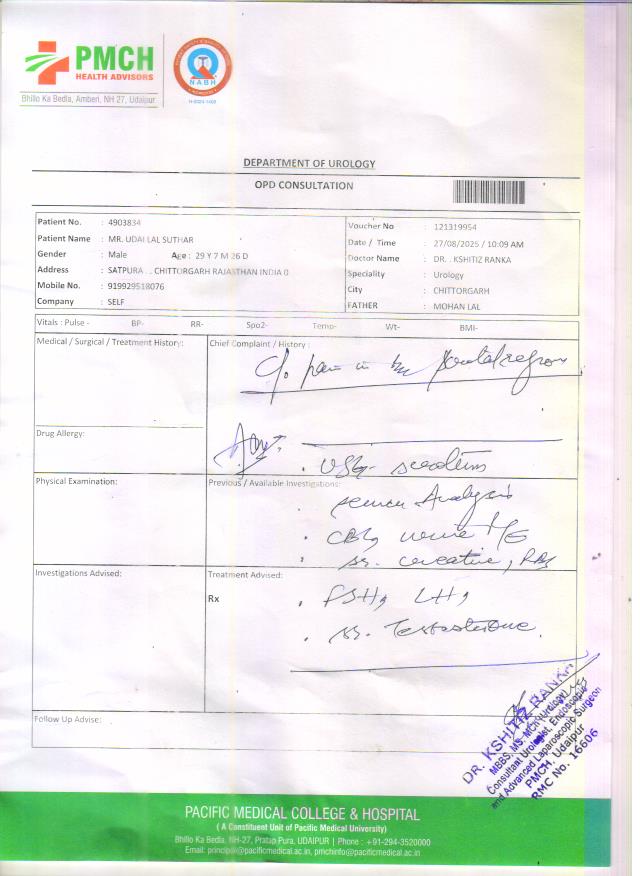 PMCH
HEALTH ADVISORS
Bhilo Ka Bedla, Amberi, NH 27, Udaipur
NABH
H-2024-1402
DEPARTMENT OF UROLOGY
OPD CONSULTATION
Patient No. : 4903834
Patient Name : MR. UDAI LAL SUTHAR
Gender : Male Age : 29 Y 7 M 26 D
Address : SATPURA . . CHITTORGARH RAJASTHAN INDIA 0
Mobile No. : 919929518076
Company : SELF
Voucher No : 121319954
Date / Time : 27/08/2025 / 10:09 AM
Doctor Name : DR. . KSHITIZ RANKA
Speciality : Urology
City : CHITTORGARH
FATHER : MOHAN LAL
Vitals : Pulse - BP- RR- Spo2- Temp- Wt- BMI-
Medical / Surgical / Treatment History:
Chief Complaint / History :
C/o pain in region
Drug Allergy:
Adv.
. USG - scrotum
Physical Examination:
Previous / Available Investigations:
. semen Analysis
. CBC, urine M/E
. sr. creatine, RBS
Investigations Advised:
Treatment Advised:
Rx
. FSH, LH,
. sr. Testosterone.
Follow Up Advise:
DR. KSHITIZ RANKA
MBBS, MS, MCH (Urology)
Consultant Urologist, Endoscopic
and Advanced Laparoscopic Surgeon
PMCH, Udaipur
RMC No. 16606
PACIFIC MEDICAL COLLEGE & HOSPITAL
( A Constituent Unit of Pacific Medical University)
Bhilo Ka Bedla, NH-27, Pratap Pura, UDAIPUR | Phone : +91-294-3520000
Email: principal@pacificmedical.ac.in, pmchinfo@pacificmedical.ac.in